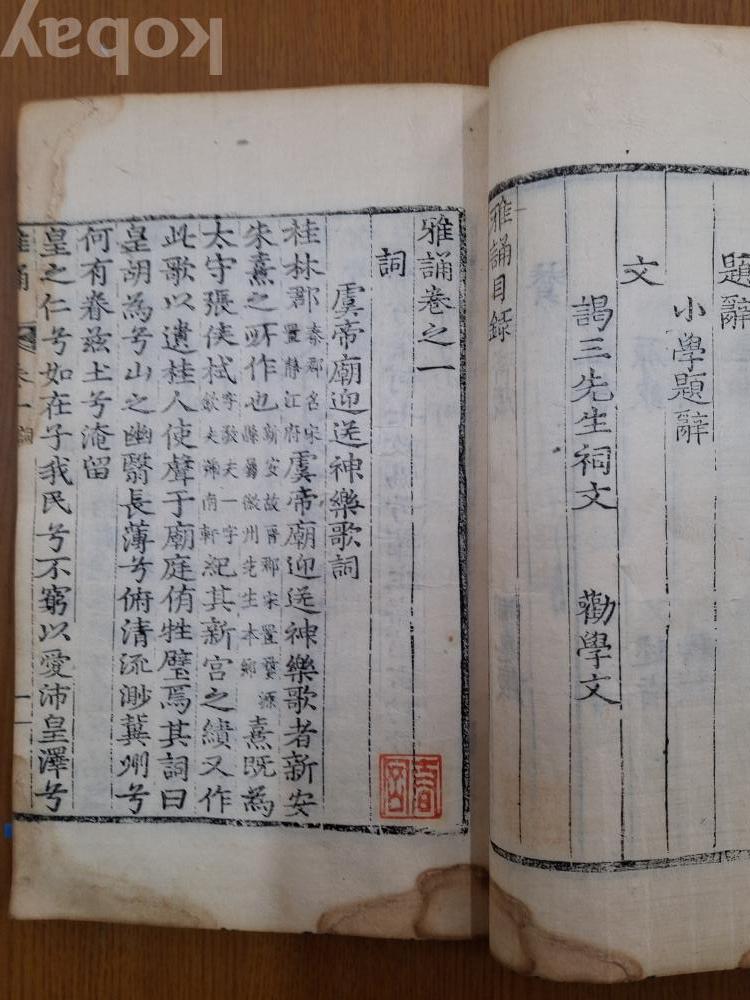 kobay
題辭
小學題辭
文
謁三先生祠文 勸學文
雅誦目錄
雅誦卷之一
詞
虞帝廟迎送神樂歌詞
桂林郡秦郡名宋置靜江府虞帝廟迎送神樂歌者新安
朱熹之所作也新安故晉郡宋置婺源縣屬徽州先生本鄕熹既為
太守張侯栻字敬夫一字欽夫號南軒紀其新宮之績又作
此歌以遺桂人使聲于廟庭侑牲璧焉其詞曰
皇胡為兮山之幽翳長薄兮俯清流渺冀州兮
何有眷玆土兮淹留
皇之仁兮如在子我民兮不窮以愛沛皇澤兮
雅誦 卷一 詞 一